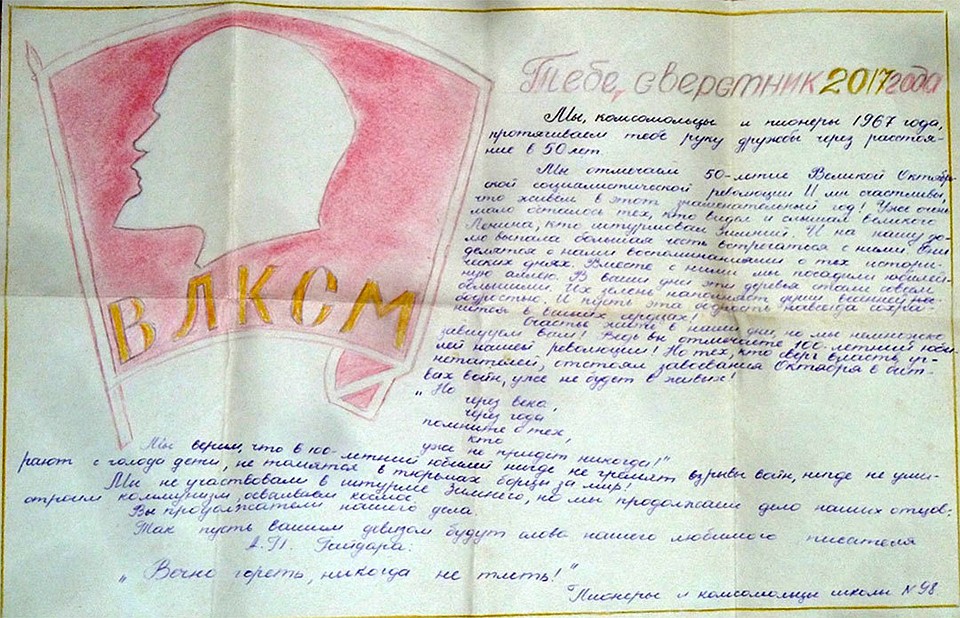 ВЛКСМ
Тебе, сверстник 2017 года
Мы, комсомольцы и пионеры 1967 года,
протягиваем тебе руку дружбы через расстоя-
ние в 50 лет.
Мы отмечаем 50-летие Великой Октябрь-
ской социалистической революции И мы счастливы,
что живем в этот знаменательный год! Уже очень
мало осталось тех, кто видел и слышал великого
Ленина, кто штурмовал Зимний. И на нашу до-
лю выпала большая честь встречаться с ними. Они
делятся с нами воспоминаниями о тех истори-
ческих днях. Вместе с ними мы посадили юбилей-
ную аллею. В ваши дни эти деревья стали совсем
большими. Их зелень наполняет души
бодростью. И пусть эта бодрость навсегда сохра-
нится в ваших сердцах!
Счастье жить в наши дни, но мы немножко
завидуем вам! Ведь вы отмечаете 100-летний юби-
лей нашей революции! Но тех, кто сверг власть уг-
нетателей, отстоял завоевания Октября в бит-
вах войн, уже не будет в живых!
„Но
через века,
через года
помните о тех,
кто
уже не придет никогда!"
Мы верим, что в 100-летний юбилей нигде не гремят взрывы войн, нигде не уми-
рают с голода дети, не томятся в тюрьмах борцы за мир!
Мы не участвовали в штурме Зимнего, но мы продолжаем дело наших отцов:
строим коммунизм, осваиваем космос
Вы продолжатели нашего дела.
Так пусть вашим девизом будут слова нашего любимого писателя
А.П. Гайдара:
„Вечно гореть, никогда не тлеть!"
Пионеры и комсомольцы школы №98.